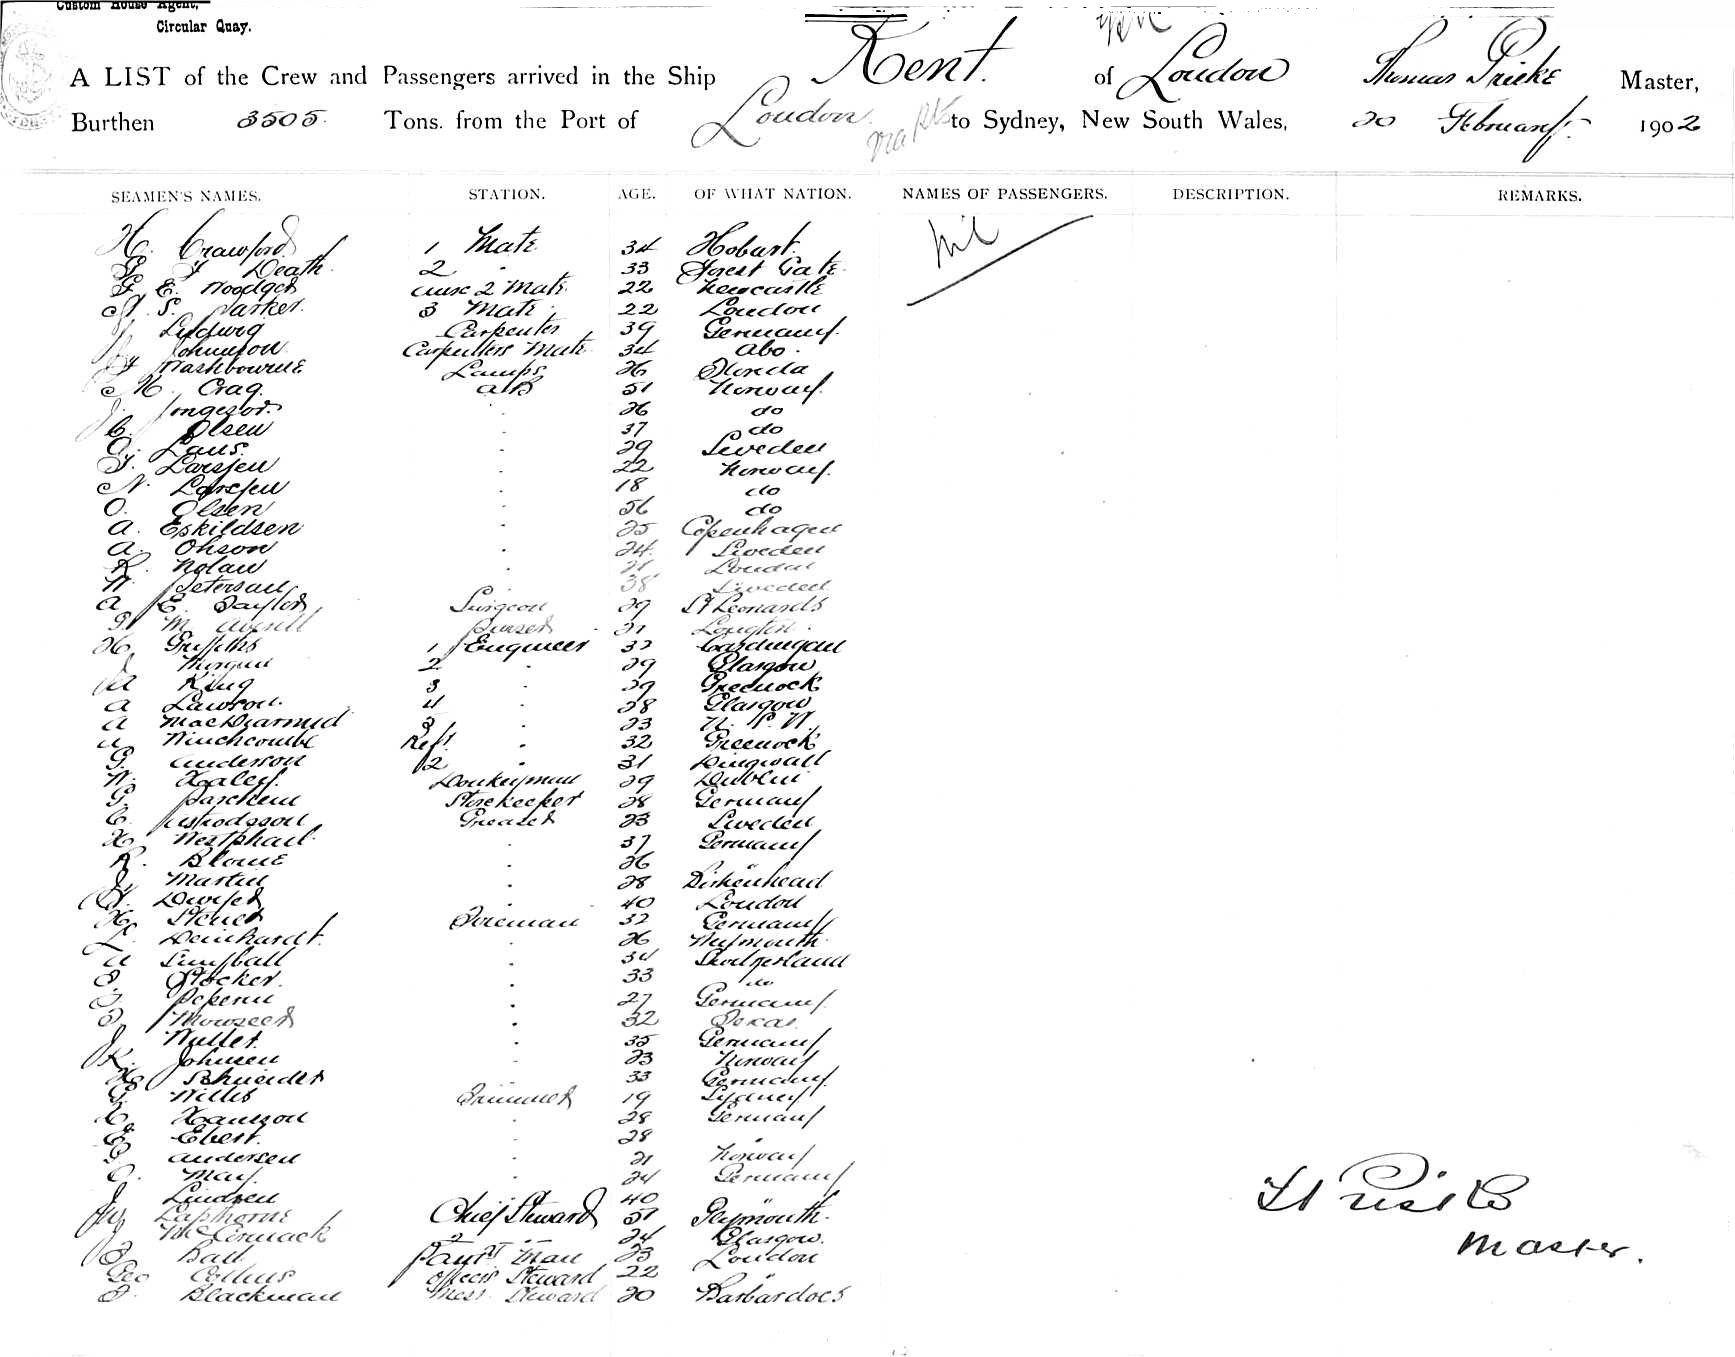 Custom House Agent,
Circular Quay.
A LIST of the Crew and Passengers arrived in the Ship Kent. of London Thomas Pricke Master,
Burthen 3505 Tons. from the Port of London to Sydney, New South Wales, 20 February 1902
SEAMEN'S NAMES. STATION. AGE. OF WHAT NATION. NAMES OF PASSENGERS. DESCRIPTION. REMARKS.
H. Crawford 1 Mate 34 Hobart. Nil
Death 2 " 33 Forest Gate.
G. E. Woodget 2 Mate 22 Newcastle
S. Parker. 3 Mate 22 London
Ludwig Carpenter 39 Germany.
Johnnson Carpenters Mate 34 Abo.
Washbourne Lamps 26 Florida
H. Crag. AB 51 Norway.
J. 26 do
C. Olsen 37 do
Laus. 29 Sweden
T. Larssen 22 Norway.
N. Larsen 18 do
O. Olsen 56 do
A. Eskildsen 25 Copenhagen
A. Ohson 24. Sweden
R. Nolan 21 London
W. Petersen 38 Sweden
A E. Taylor Surgeon 29 St Leonards
M. Averill Purser 21
H Griffiths 1 Engineer 32 Cardingan
Morgan 2 " 29 Glasgow
King 3 " 29 Greenock
A Lawson. 4 " 28 Glasgow
A MacDiarmid 5 " 23 N. S. W.
Winchcombe Refr. " 32 Greenock
G. Anderson 2 " 31 Dingwall
W. Haley. Donkeyman 29 Dublin
G. Storekeeper 28 Germany
C. Greaser 23 Sweden
H Westphail. 37 Germany
R. Blome 26 "
J. Martin 28 Birkenhead
Dwyer 40 London
H. Stener Fireman 32 Germany
L. Deinhardt. 26 Weymouth.
34 Switzerland
Stocker. 33 do
27 Germany.
32 Texas.
J 35 Germany
K. Johnsen 23 Norway
H. Schneider 33 Germany.
G. Willis Trimmer 19 Sydney
C. Hanson 28 Germany
E. Ebert. 28 "
G Andersen 21 Norway
C. May. 24 Germany
J Lindren 40 "
Lapthorne Chief Steward 51 Plymouth.
McCormack 2 " 24 Glasgow.
Ball Pant Man 23 London
Geo Collins Officers Steward 22 "
Blackman Mess. Steward 20 Barbardoes
Master.